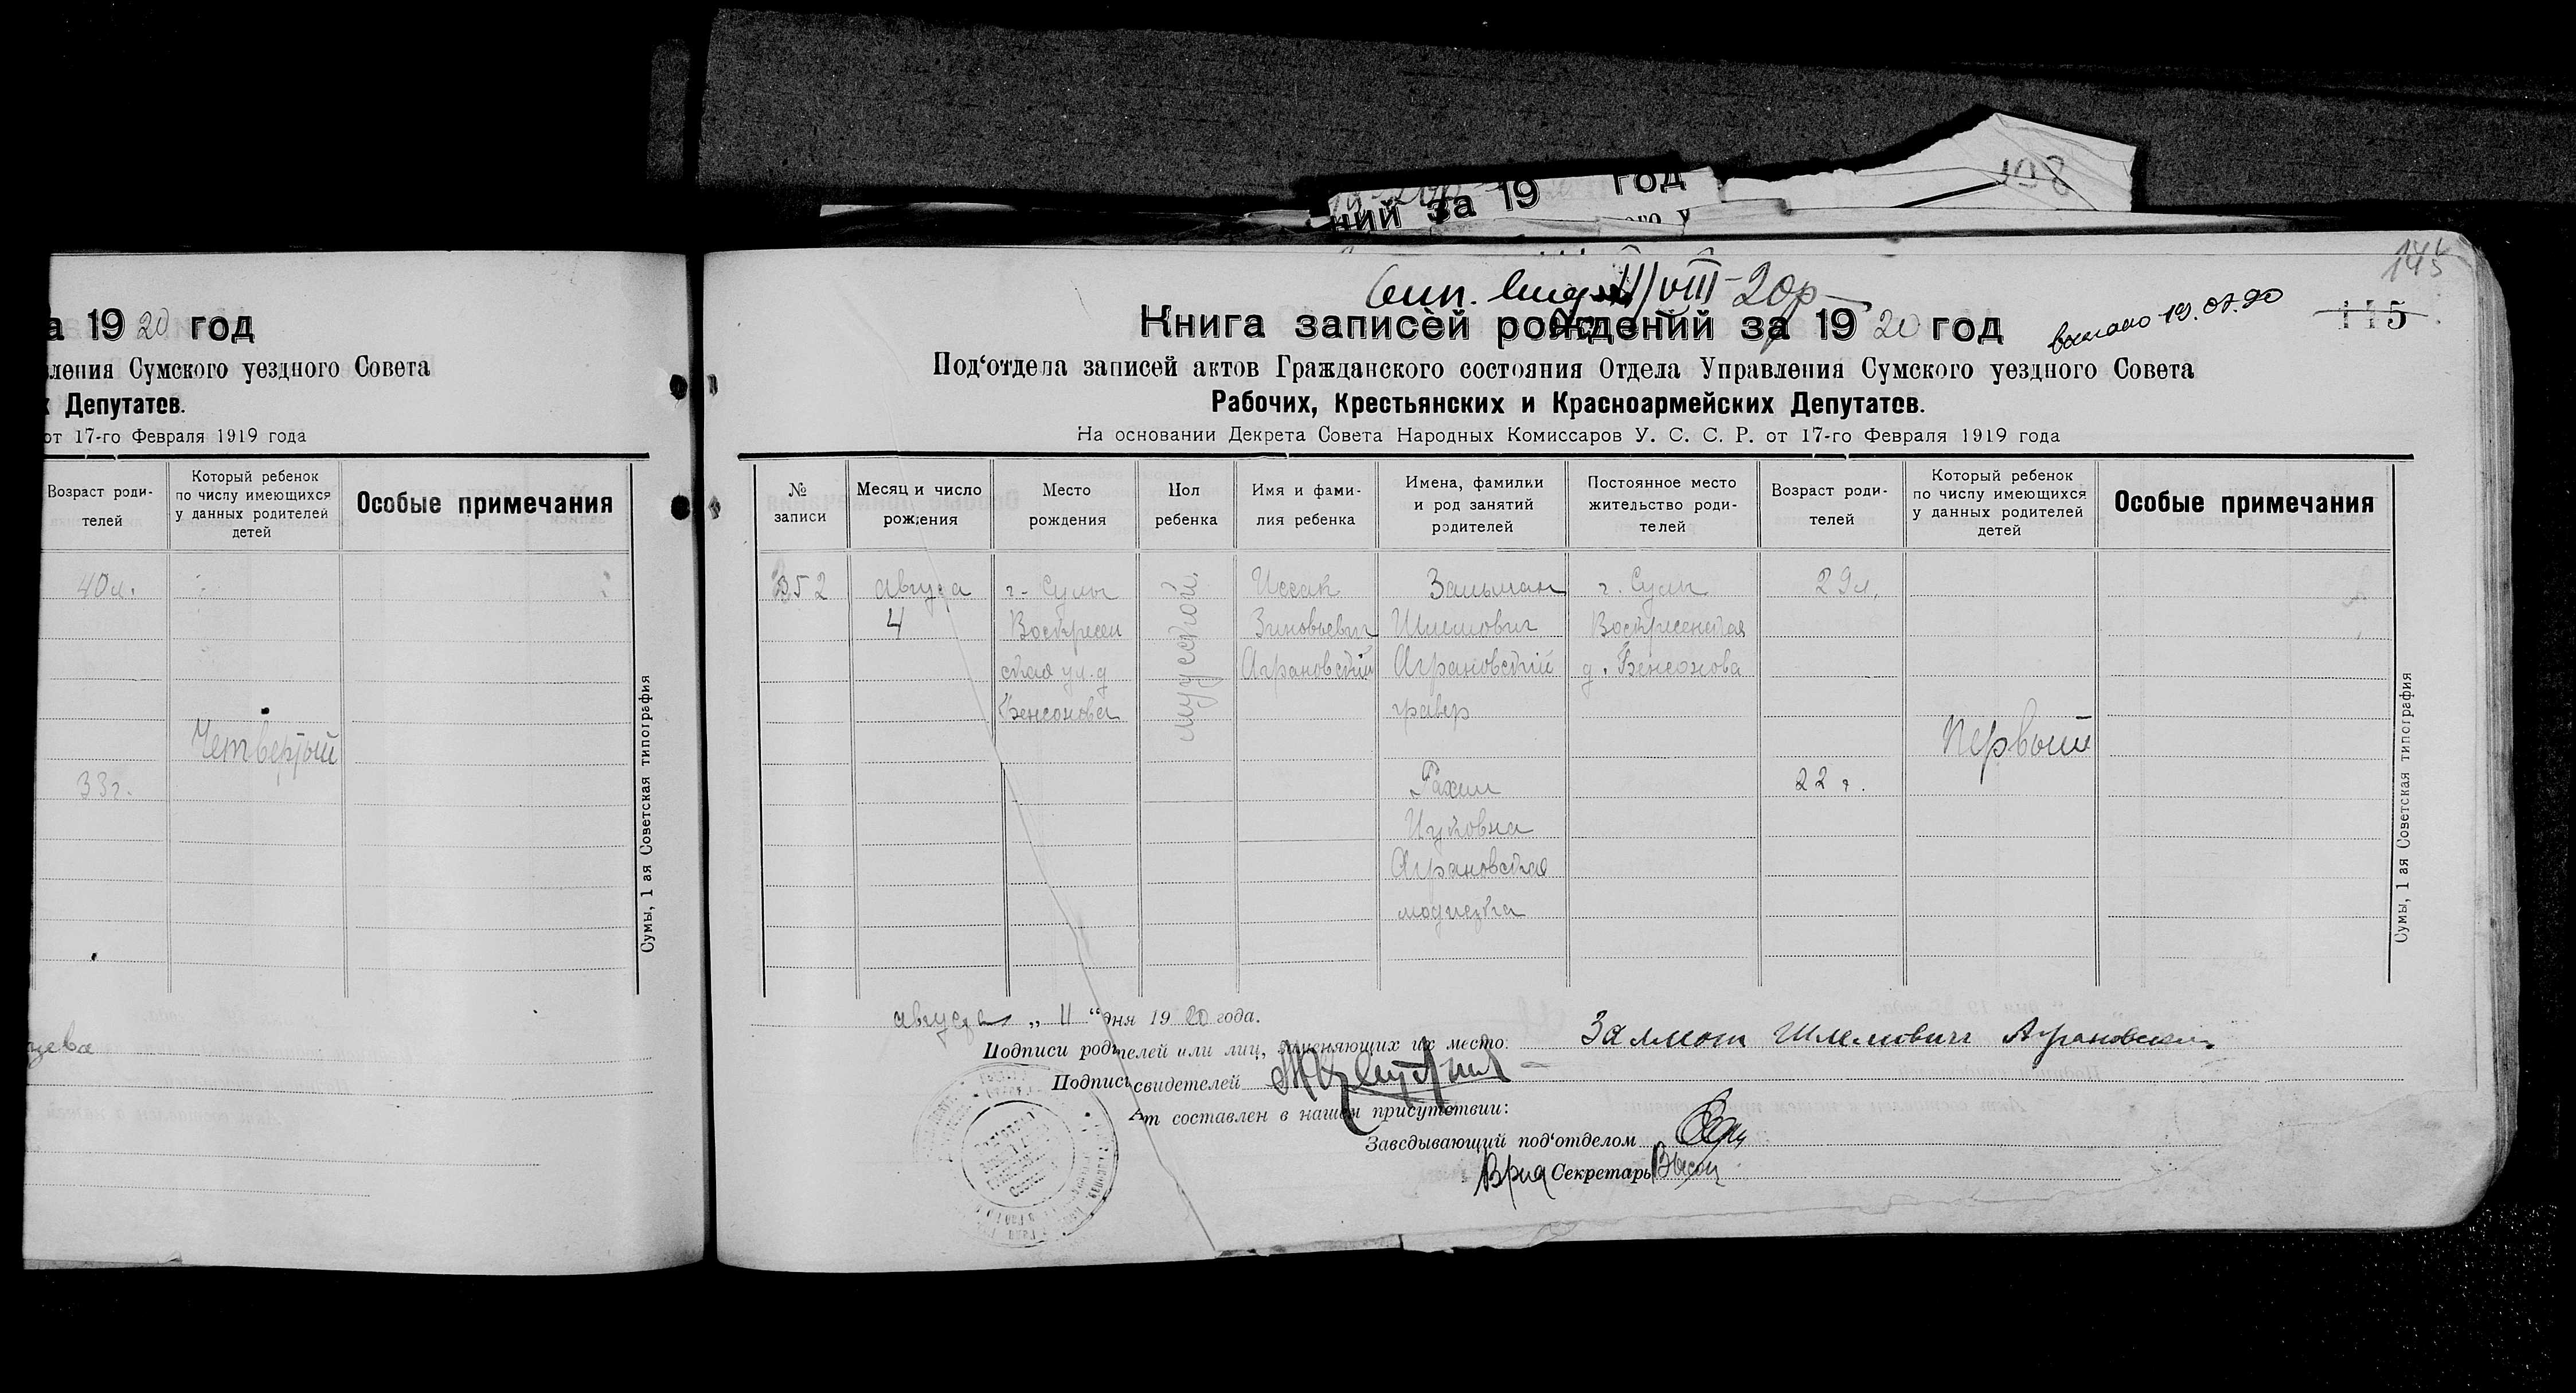 198
ний за 19 год
а 19 20 год
вления Сумского уездного Совета
х Депутатов.
от 17-го Февраля 1919 года
Возраст роди-
телей
Который ребенок
по числу имеющихся
у данных родителей
детей
Особые примечания
40л.
Четвертый
33г.
Сумы, 1 ая Советская типография
145
115
/VIII-20р
выслано 19.07.90
Книга записей рождений за 19 20 год
Под‘отдела записей актов Гражданского состояния Отдела Управления Сумского уездного Совета
Рабочих, Крестьянских и Красноармейских Депутатов.
На основании Декрета Совета Народных Комиссаров У. С. С. Р. от 17-го Февраля 1919 года
№
записи
Месяц и число
рождения
Место
рождения
Пол
ребенка
Имя и фами-
лия ребенка
Имена, фамилии
и род занятий
родителей
Постоянное место
жительство роди-
телей
Возраст роди-
телей
Который ребенок
по числу имеющихся
у данных родителей
детей
Особые примечания
352
августа
4
г. Сумы
Воскресен
ская ул. д
Бенсонова
мужской
Иссак
Зиновьевич
Аграновский
Зальман
Шлемович
Аграновскій
гравер
Рахиль
Ицковна
Аграновская
модистка
г. Сумы
Воскресенская
д. Бенсонова
29л.
22 г.
Первый
Сумы, 1 ая Советская типография
августа „ 11 “ дня 19 20 года.
Подписи родителей или лиц, заменяющих их место: Залман Шлемович Аграновский
Подписи свидетелей
Акт составлен в нашем присутствии:
Заведывающий под‘отделом
Врид Секретарь